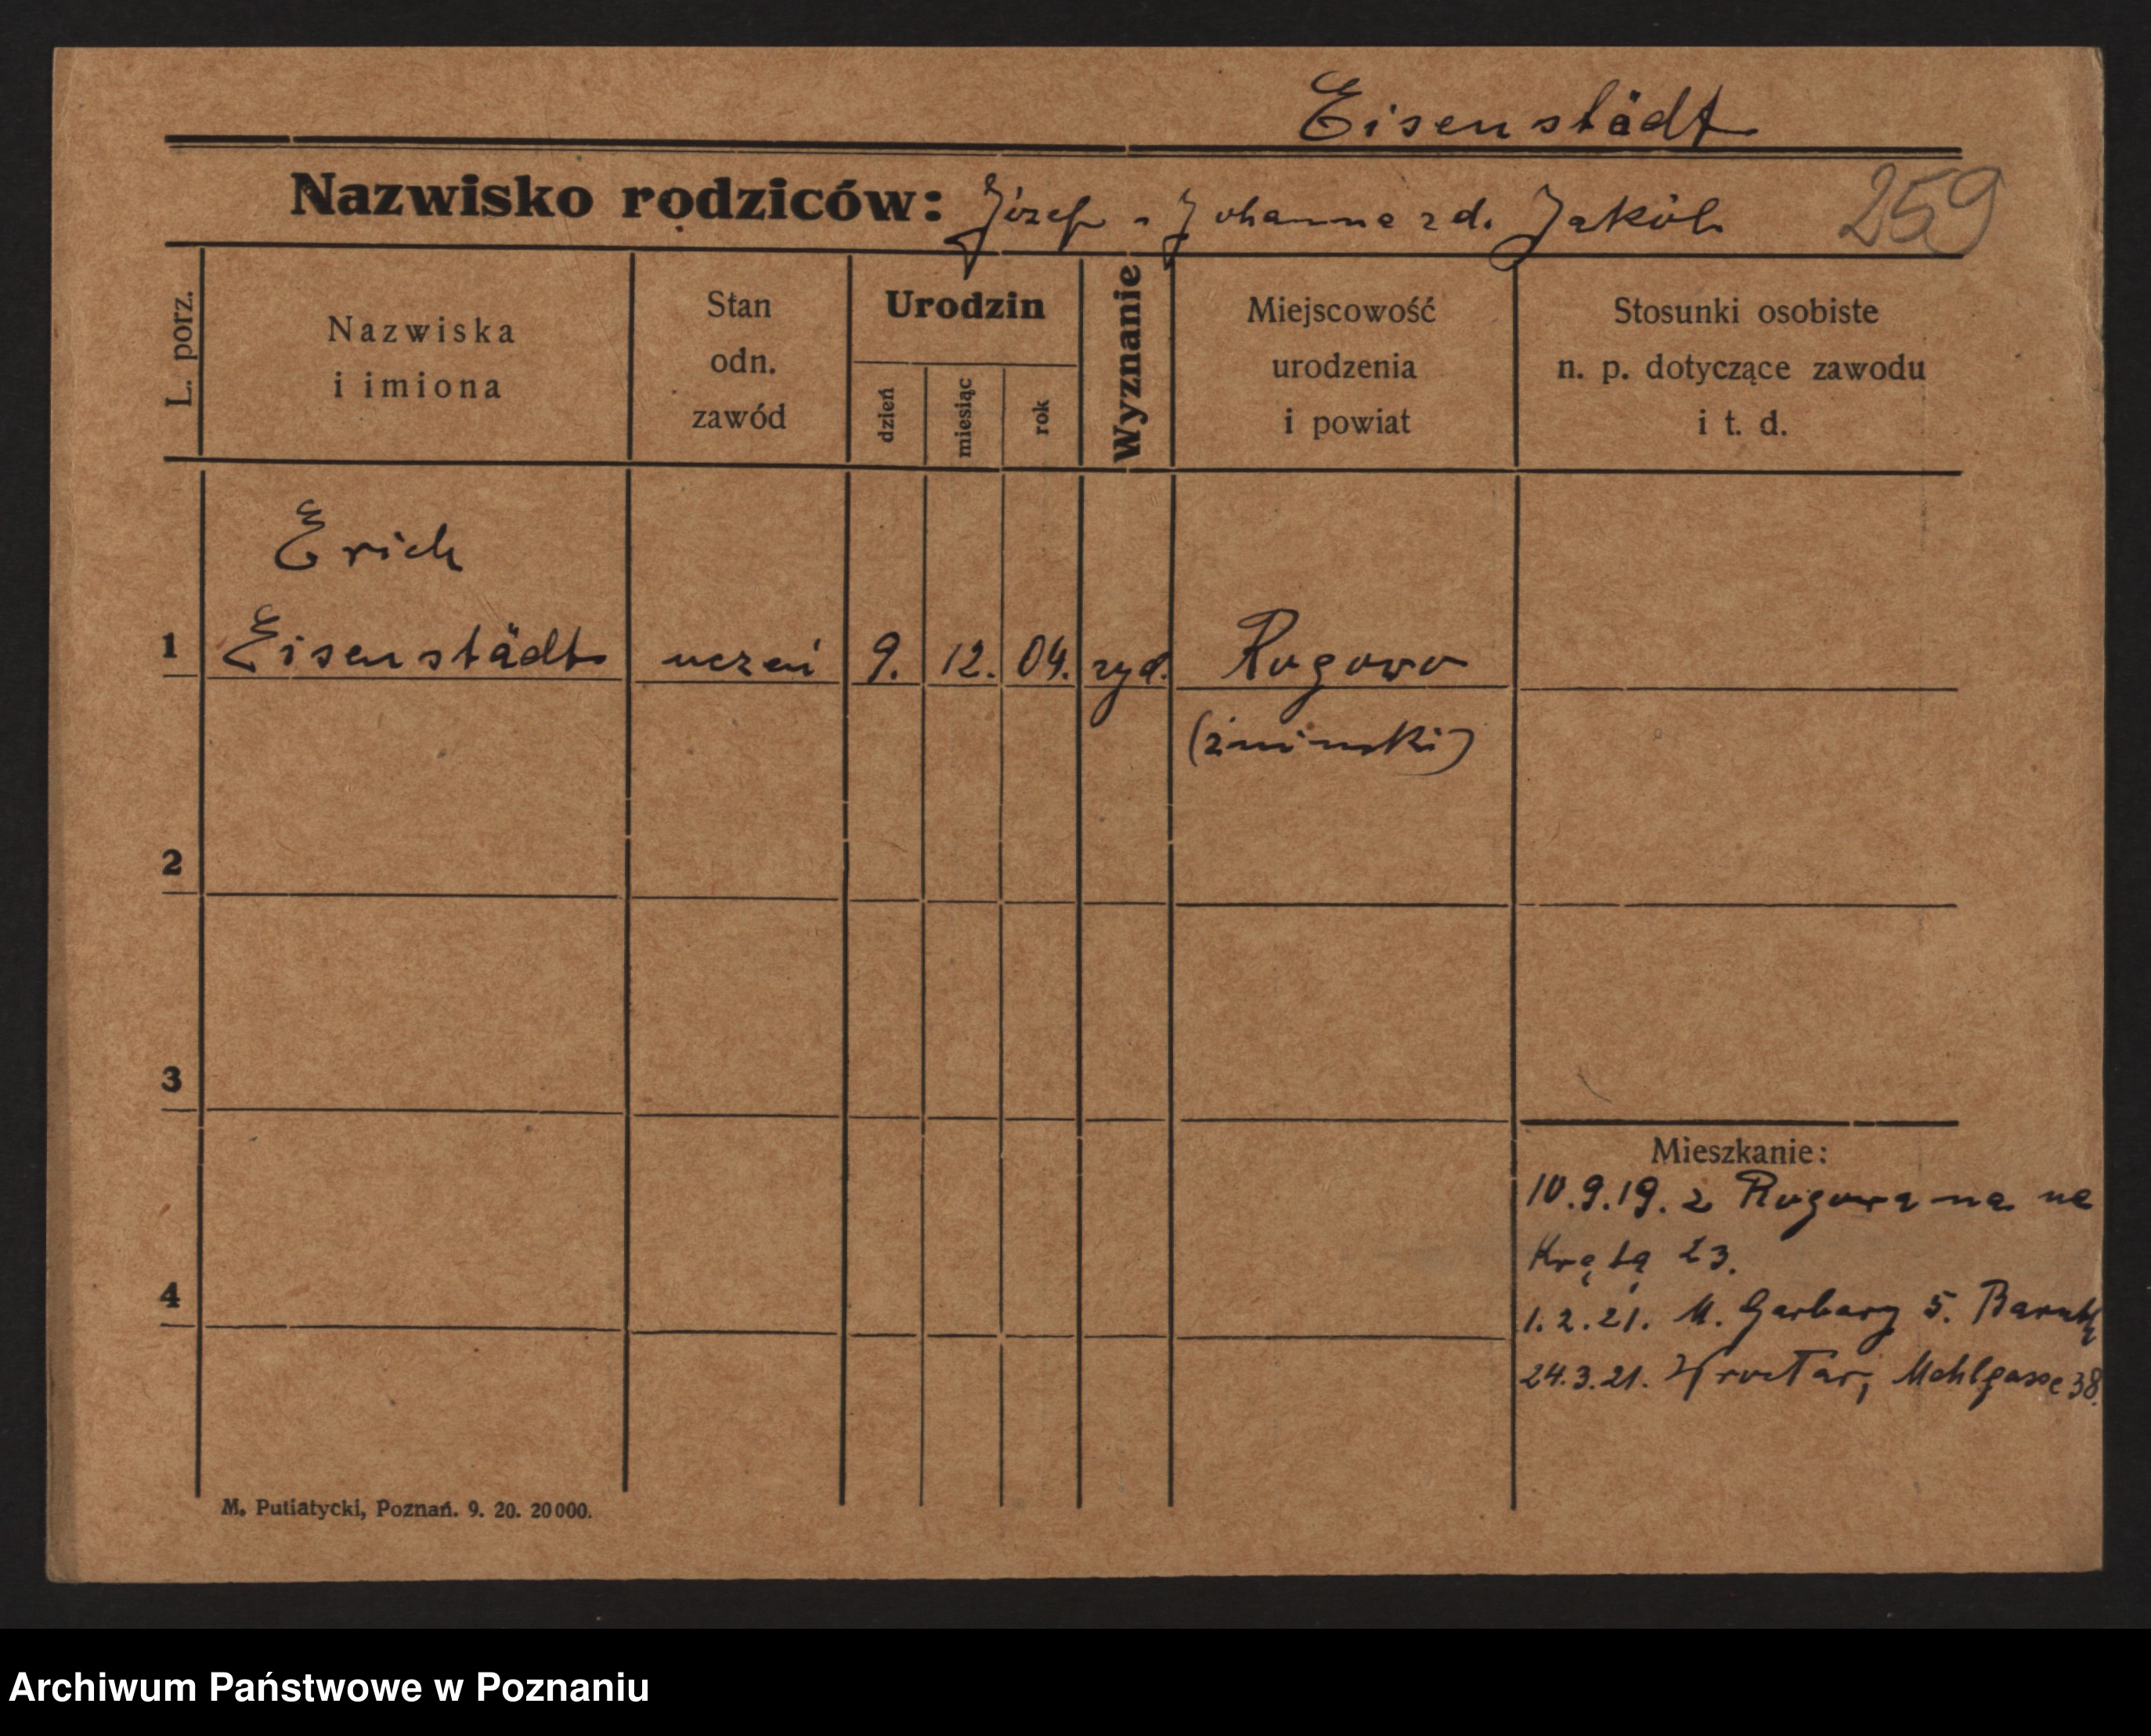 Eisenstädt
Nazwisko rodziców: Józef - Johanna z d. Jakób
259
L. porz.
Nazwiska
i imiona
Stan
odn.
zawód
Urodzin
dzień
miesiąc
rok
Wyznanie
Miejscowość
urodzenia
i powiat
Stosunki osobiste
n. p. dotyczące zawodu
i t. d.
Erich
1 Eisenstädt uczeń 9. 12. 04. żyd. Rogowo
(żniński)
2
3
Mieszkanie:
10.9.19. z Rogowa na
Krętą 23.
4
1.2.21. M. Garbary 5.
24.3.21. Wrocław, Mehlgasse 38.
M. Putiatycki, Poznań. 9. 20. 20000.
Archiwum Państwowe w Poznaniu